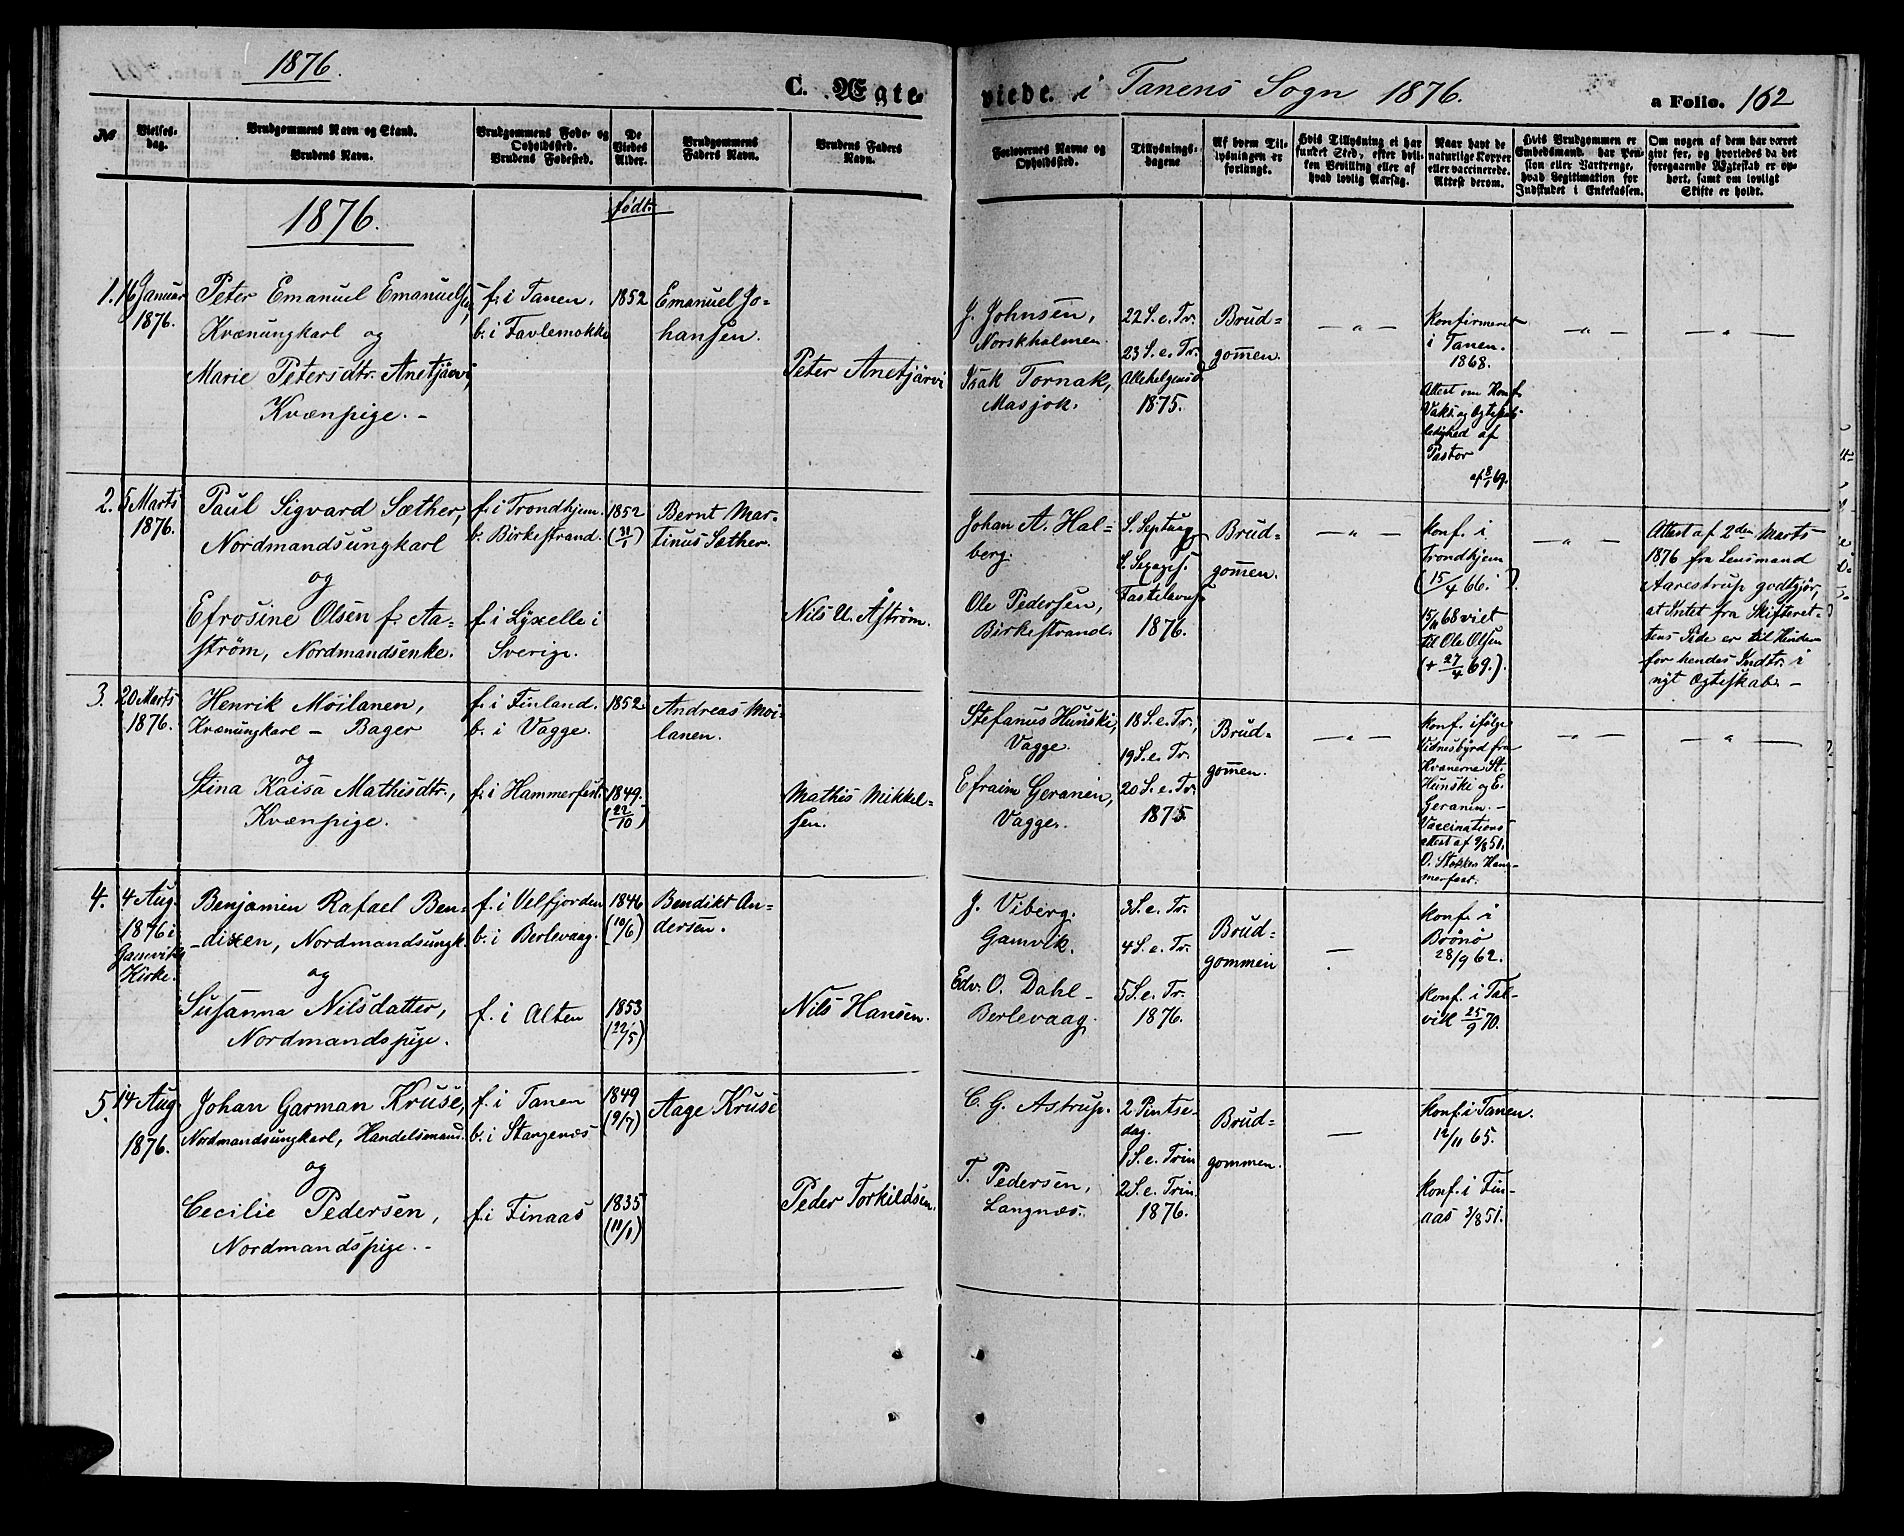 1876.
C. Ægte-
viede. i Tanens Sogn 1876.
a Folio. 162
No
Vielses-
dag.
Brudgommens Navn og Stand.
Brudens Navn.
Brudgommens Føde- og
Opholdssted.
Brudens Fødested.
De
Viedes
Alder.
Brudgommens
Faders Navn.
Brudens Faders
Navn.
Forlovernes Navne og
Opholdssted.
Tillysnings-
dagene
Af hvem Til-
lysningen er
forlangt.
Hvis Tillysning ei har
fundet Sted, efter hvil-
ken Bevilling eller af
hvad lovlig Aarsag.
Naar havt de
naturlige Kopper
eller vaccinerede.
Attest derom.
Hvis Brudgommen er
Embedsmand, har Pen-
sion eller Vartpenge,
hvad Legitimation for
Indskudet i Enkekassen.
Om nogen af dem har været
gift før, og hvorledes da det
foregaaende Ægteskab er op-
hørt, samt om lovligt
Skifte er holdt.
1876.
født.
1. 16 Januar
1876.
Peter Emanuel Emanuelsen,
Kvænungkarl og
Marie Petersdtr. Anetjärvi,
Kvænpige. -
f. i Tanen.
b. i Favlemokke
1852
Emanuel Jo-
hansen.
Peter Anetjärvi
J. Johnsen,
Norskholmen.
Isak Tornak,
Masjok.
22 S. e. Tr.
23 S. e. Tr.
Allehelgensd.
1875.
Brud-
gomen.
— " —
Konfirmeret
i Tanen.
1868.
Attest om Konf.
Vaks. og Ægteskabs-
ledighed af
Pastor
af 8/1 69.
— " —
— " —
2. 5 Marts
1876.
Paul Sigvard Sæther,
Nordmandsungkarl
og
Efrosine Olsen f. Aa-
strøm, Nordmandsenke.
f. i Trondhjem.
b. Birkestrand.
f. i Lyxelle i
Sverige.
1852
(31/1)
Bernt Mar-
tinus Sæther.
Nils U. Åström.
Johan A. Hal-
berg.
Ole Pedersen,
Birkestrand.
S. Septuag.
S. Sexages.
Fastelavns
1876.
Brud-
gomen.
— " —
Konf. i
Trondhjem
(15/4 66.)
15/11 68 viet
til Ole Olsen
(+ 27/4 69.).
— " —
Attest af 2den Marts
1876 fra Lensmand
Aarestrup godtgjør,
at Intet fra Skifteret-
tens Side er til Hinder
for hendes Indtr. i
nyt Ægteskab. -
3. 20 Marts
1876.
Henrik Moilanen,
Kvænungkarl - Bager
og
Stina Kaisa Mathisdtr.,
Kvænpige.
f. i Finland.
b. i Vagge.
f. i Hammerfest.
1852.
1849.
(22/10)
Andreas Moi-
lanen.
Mathis Mikkel-
sen.
Stefanus Hunski,
Vagge.
Efraim Geranen,
Vagge.
18 S. e. Tr.,
19 S. e. Tr.
20 S. e. Tr.
1875.
Brud-
gomen.
— " —
Konf. ifølge
Vidnesbyrd fra
Kvænerne St.
Hunski og E.
Geranen. -
Vaccinations-
attest af 9/8 51.
O. Stokken Ham-
merfest.
— " —
— " —
4. 4 Aug.
1876 i
Gamviks
Kirke.
Benjamin Rafael Ben-
dixen, Nordmandsungk.
og
Susanna Nilsdatter,
Nordmandspige.
f. i Velfjorden
b. i Berlevaag.
f. i Alten
1846
(10/6)
1853
(22/5)
Bendikt An-
dersen.
Nils Hansen.
J. Viberg.
Gamvik.
Edv. O. Dahl -
Berlevaag.
3 S. e. Tr.
4 S. e. Tr.
5 S. e. Tr.
1876.
Brud-
gommen
—
Konf. i
Brönö
28/9 62.
Konf. i Tal-
vik 25/9 70.
5. 14 Aug.
1876.
Johan Garman Kruse,
Nordmandsungkarl, Handelsmand.
og
Cecilie Pedersen,
Nordmandspige. -
f. i Tanen
b. i Stangenæs
f. i Finaas
1849
(9/7)
1835
(11/1)
Aage Kruse
Peder Torkildsen.
C. G. Astrup.
T. Pedersen,
Langnæs.
2 Pintse-
dag.
1 S. e. Trin
2 S. e. Trin.
1876.
Brud-
gommen.
—
Konf. i Tanen.
12/11 65.
Konf. i Fin-
aas 3/8 51.